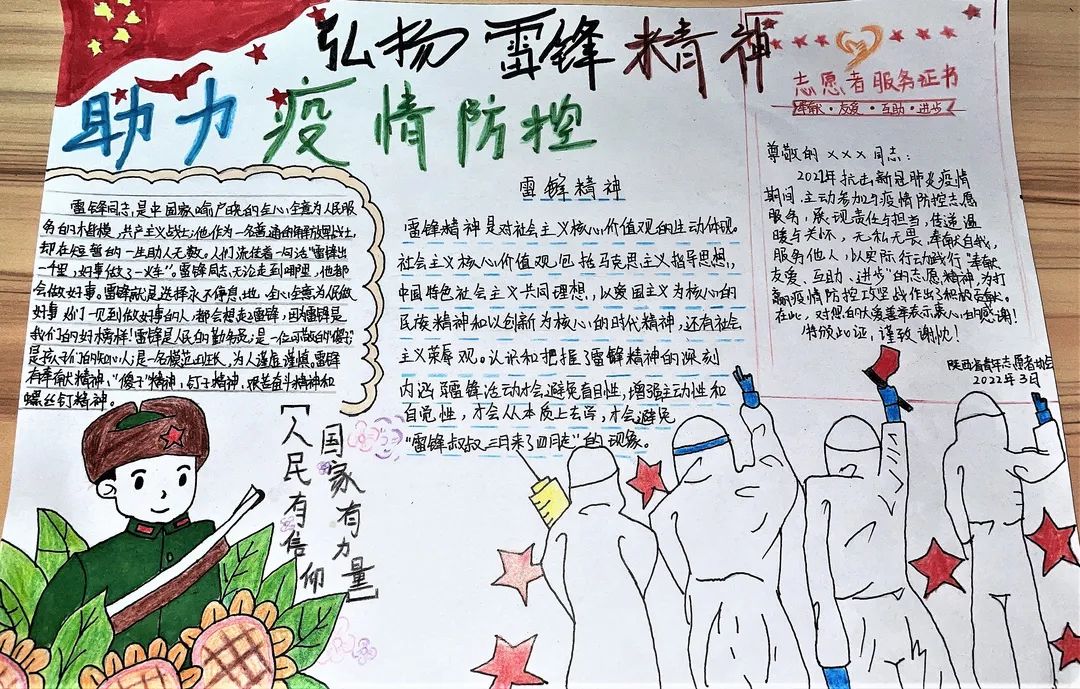 弘扬雷锋精神
助力疫情防控
雷锋同志,是中国家喻户晓的全心全意为人民服
务的楷模,共产主义战士;他作为一名普通的解放军战士,
却在短暂的一生助人无数。人们流传着一句话"雷锋出
一千里,好事做了一火车"。雷锋同志无论走到哪里,他都
会做好事。雷锋就是选择永不停息地,全心全意为人民做
好事,人们一见到做好事的人,都会想起雷锋,因为雷锋是
我们的好榜样!雷锋是人民的勤务员;是一位可敬的"傻子"
是孩子们的知心人;是一名模范班长,为人谦虚谨慎,雷锋
有奉献精神、"傻子"精神,钉子精神,艰苦奋斗精神和
螺丝钉精神。
雷锋精神
雷锋精神是对社会主义核心价值观的生动体现。
社会主义核心价值观包括马克思主义指导思想,
中国特色社会主义共同理想,以爱国主义为核心的
民族精神和以创新为核心的时代精神,还有社会
主义荣辱观。认识和把握了雷锋精神的深刻
内涵,雷锋活动才会避免盲目性,增强主动性和
自觉性,才会从本质上去学,才会避免
"雷锋叔叔三月来了四月走"的现象。
志愿者服务证书
奉献·友爱·互助·进步
尊敬的×××同志:
2021年抗击新冠肺炎疫情
期间,主动参加与疫情防控志愿
服务,展现责任与担当,传递温
暖与关怀,无私无畏,奉献自我,
服务他人,以实际行动践行"奉献、
友爱、互助、进步"的志愿精神,为打
赢疫情防控攻坚战作出了积极贡献。
在此,对您的大爱善举表示衷心的感谢!
特颁此证,谨致谢忱!
陕西省青年志愿者协会
2022年3月
人民有信仰
国家有力量